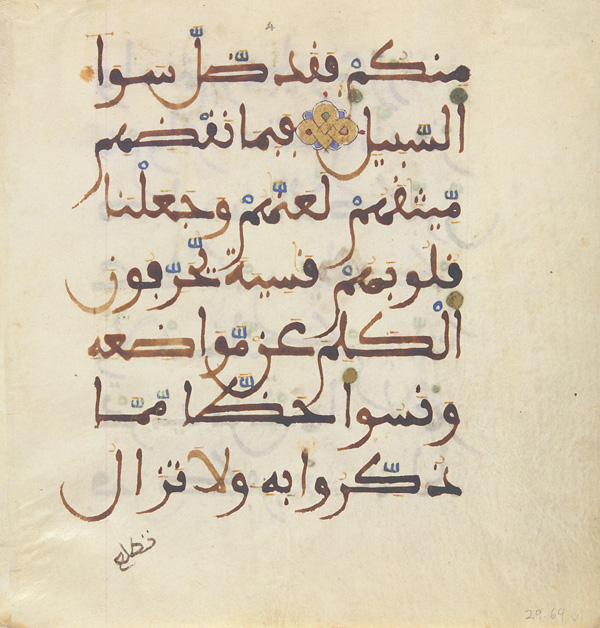 4
منكم فقد ضل سوا
السبيل فبما نقضهم
ميثقهم لعنهم وجعلنا
قلوبهم قسية يحرفون
الكلم عن مواضعه
ونسوا حظا مما
ذكروا به ولا تزال
تطلع
29.64